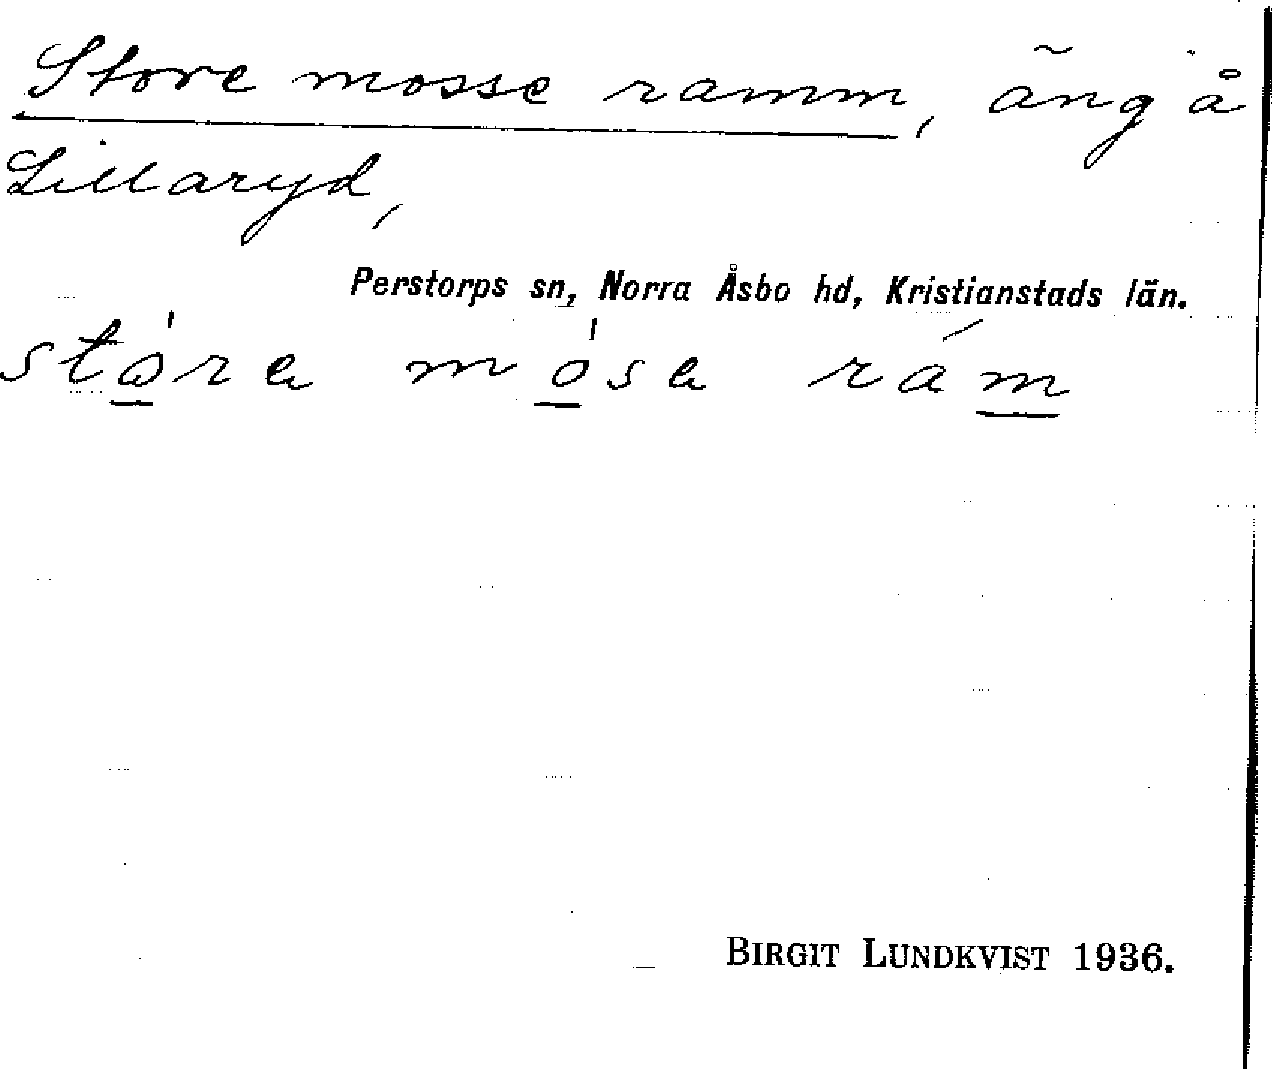 Store mosse ramm, äng å
Lillaryd,
Perstorps sn, Norra Åsbo hd, Kristianstads län.
stóra mósa rám
BIRGIT LUNDKVIST 1936.